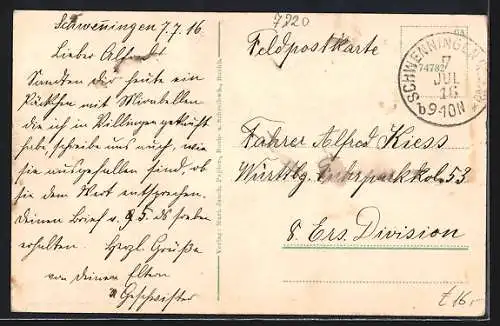 7220
Schwenningen 7.7.16
Lieber Alfred!
Sandten dir heute ein
Päckchen mit Mirabellen
die ich in Villingen gekauft
habe, schreibe uns auch, wie
sie ausgefallen sind, ob
sie dem Wert entsprechen.
Deinen Brief v. 5. ds soeben
erhalten. Herzl. Grüße
von deinen Eltern
u Geschwister
Feldpostkarte
SCHWENNINGEN
7
JUL
16
b9-10N
74782
Fahrer Alfred Kiess
Württbg. Fuhrparkkol. 53
8 Ers. Division
€16,-